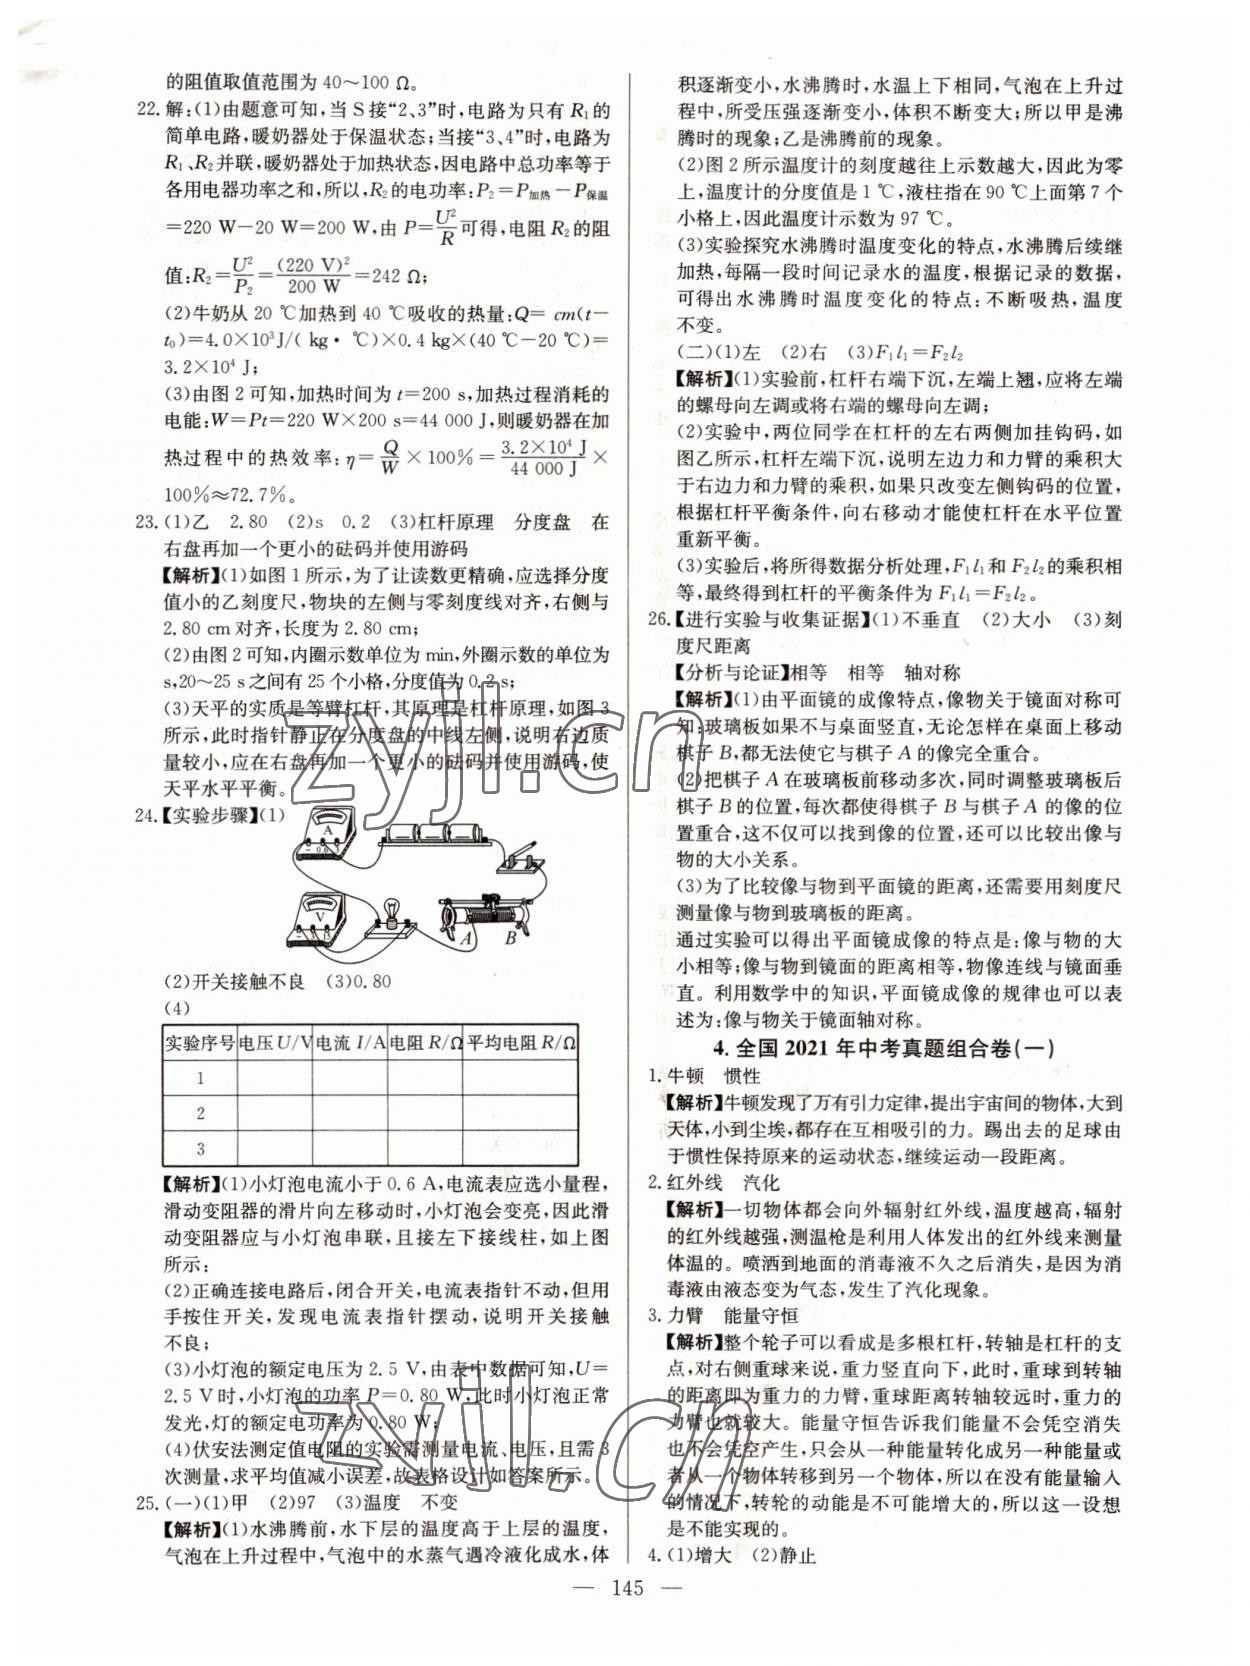 的阻值取值范围为 40～100 Ω。
22. 解:(1)由题意可知,当 S 接“2、3”时,电路为只有 R₁ 的
简单电路,暖奶器处于保温状态;当接“3、4”时,电路为
R₁、R₂ 并联,暖奶器处于加热状态,因电路中总功率等于
各用电器功率之和,所以,R₂ 的电功率:P₂=P加热−P保温
=220 W−20 W=200 W,由 P=U²/R 可得,电阻 R₂ 的阻
值:R₂=U²/P₂=(220 V)²/200 W=242 Ω;
(2)牛奶从 20 ℃加热到 40 ℃吸收的热量:Q= cm(t−
t₀)=4.0×10³J/( kg· ℃)×0.4 kg×(40 ℃−20 ℃)=
3.2×10⁴ J;
(3)由图 2 可知,加热时间为 t=200 s,加热过程消耗的
电能:W=Pt=220 W×200 s=44 000 J,则暖奶器在加
热过程中的热效率:η=Q/W×100%=3.2×10⁴ J/44 000 J×
100%≈72.7%。
23. (1)乙 2.80 (2)s 0.2 (3)杠杆原理 分度盘 在
右盘再加一个更小的砝码并使用游码
【解析】(1)如图 1 所示,为了让读数更精确,应选择分度
值小的乙刻度尺,物块的左侧与零刻度线对齐,右侧与
2.80 cm 对齐,长度为 2.80 cm;
(2)由图 2 可知,内圈示数单位为 min,外圈示数的单位为
s,20～25 s 之间有 25 个小格,分度值为 0.2 s;
(3)天平的实质是等臂杠杆,其原理是杠杆原理,如图 3
所示,此时指针静止在分度盘的中线左侧,说明右边质
量较小,应在右盘再加一个更小的砝码并使用游码,使
天平水平平衡。
24.【实验步骤】(1)
A
− 0.6 3
V
− 3 15
A B
(2)开关接触不良 (3)0.80
(4)
实验序号 电压 U/V 电流 I/A 电阻 R/Ω 平均电阻 R/Ω
1
2
3
【解析】(1)小灯泡电流小于 0.6 A,电流表应选小量程,
滑动变阻器的滑片向左移动时,小灯泡会变亮,因此滑
动变阻器应与小灯泡串联,且接左下接线柱,如上图
所示;
(2)正确连接电路后,闭合开关,电流表指针不动,但用
手按住开关,发现电流表指针摆动,说明开关接触
不良;
(3)小灯泡的额定电压为 2.5 V,由表中数据可知,U=
2.5 V 时,小灯泡的功率 P=0.80 W,此时小灯泡正常
发光,灯的额定电功率为 0.80 W;
(4)伏安法测定值电阻的实验需测量电流、电压,且需 3
次测量,求平均值减小误差,故表格设计如答案所示。
25. (一)(1)甲 (2)97 (3)温度 不变
【解析】(1)水沸腾前,水下层的温度高于上层的温度,
气泡在上升过程中,气泡中的水蒸气遇冷液化成水,体
积逐渐变小,水沸腾时,水温上下相同,气泡在上升过
程中,所受压强逐渐变小,体积不断变大;所以甲是沸
腾时的现象;乙是沸腾前的现象。
(2)图 2 所示温度计的刻度越往上示数越大,因此为零
上,温度计的分度值是 1 ℃,液柱指在 90 ℃上面第 7 个
小格上,因此温度计示数为 97 ℃。
(3)实验探究水沸腾时温度变化的特点,水沸腾后续继
加热,每隔一段时间记录水的温度,根据记录的数据,
可得出水沸腾时温度变化的特点:不断吸热,温度
不变。
(二)(1)左 (2)右 (3)F₁l₁=F₂l₂
【解析】(1)实验前,杠杆右端下沉,左端上翘,应将左端
的螺母向左调或将右端的螺母向左调;
(2)实验中,两位同学在杠杆的左右两侧加挂钩码,如
图乙所示,杠杆左端下沉,说明左边力和力臂的乘积大
于右边力和力臂的乘积,如果只改变左侧钩码的位置,
根据杠杆平衡条件,向右移动才能使杠杆在水平位置
重新平衡。
(3)实验后,将所得数据分析处理,F₁l₁ 和 F₂l₂ 的乘积相
等,最终得到杠杆的平衡条件为 F₁l₁=F₂l₂。
26.【进行实验与收集证据】(1)不垂直 (2)大小 (3)刻
度尺距离
【分析与论证】相等 相等 轴对称
【解析】(1)由平面镜的成像特点,像物关于镜面对称可
知:玻璃板如果不与桌面竖直,无论怎样在桌面上移动
棋子 B,都无法使它与棋子 A 的像完全重合。
(2)把棋子 A 在玻璃板前移动多次,同时调整玻璃板后
棋子 B 的位置,每次都使得棋子 B 与棋子 A 的像的位
置重合,这不仅可以找到像的位置,还可以比较出像与
物的大小关系。
(3)为了比较像与物到平面镜的距离,还需要用刻度尺
测量像与物到玻璃板的距离。
通过实验可以得出平面镜成像的特点是:像与物的大
小相等;像与物到镜面的距离相等,物像连线与镜面垂
直。利用数学中的知识,平面镜成像的规律也可以表
述为:像与物关于镜面轴对称。
4. 全国 2021 年中考真题组合卷(一)
1. 牛顿 惯性
【解析】牛顿发现了万有引力定律,提出宇宙间的物体,大到
天体,小到尘埃,都存在互相吸引的力。踢出去的足球由
于惯性保持原来的运动状态,继续运动一段距离。
2. 红外线 汽化
【解析】一切物体都会向外辐射红外线,温度越高,辐射
的红外线越强,测温枪是利用人体发出的红外线来测量
体温的。喷洒到地面的消毒液不久之后消失,是因为消
毒液由液态变为气态,发生了汽化现象。
3. 力臂 能量守恒
【解析】整个轮子可以看成是多根杠杆,转轴是杠杆的支
点,对右侧重球来说,重力竖直向下,此时,重球到转轴
的距离即为重力的力臂,重球距离转轴较远时,重力的
力臂也就较大。能量守恒告诉我们能量不会凭空消失
也不会凭空产生,只会从一种能量转化成另一种能量或
者从一个物体转移到另一个物体,所以在没有能量输入
的情况下,转轮的动能是不可能增大的,所以这一设想
是不能实现的。
4. (1)增大 (2)静止
— 145 —
zyjl.cn
zyjl.cn